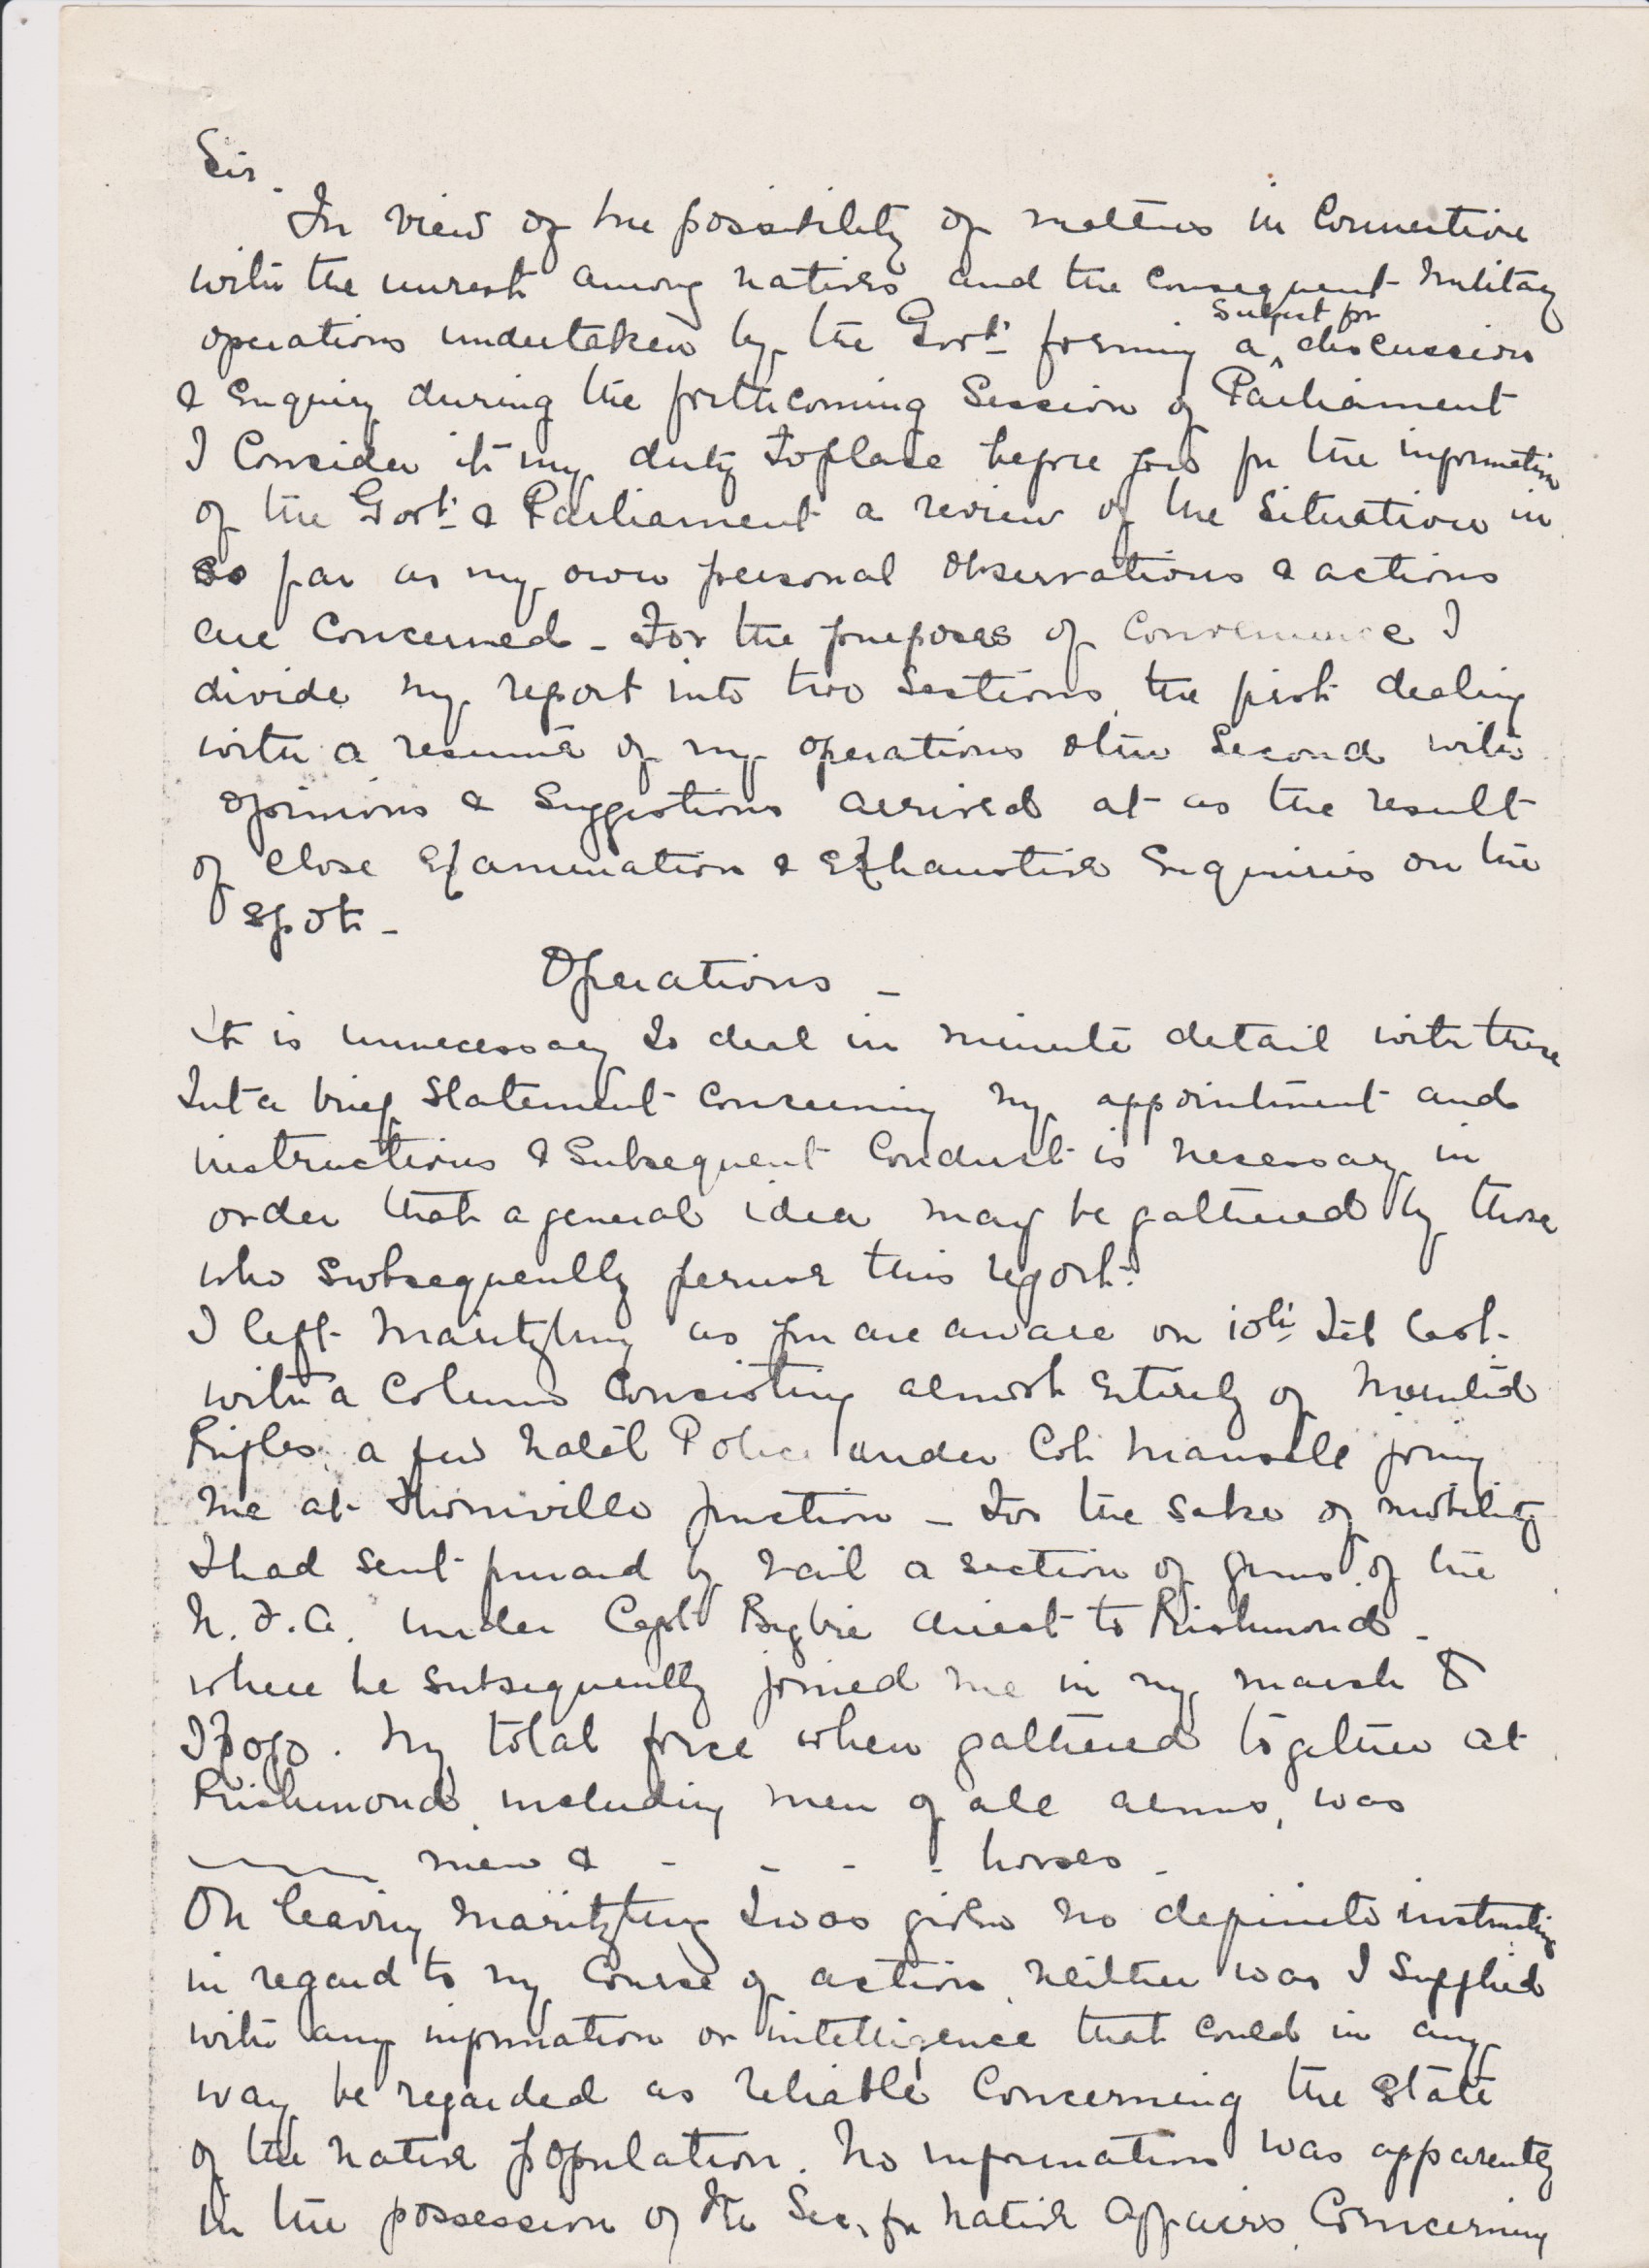 Sir.
In view of the possibility of matters in connection
with the unrest among natives and the consequent military
subject for
operations undertaken by the Govt. forming a ^ discussion
& enquiry during the forthcoming Session of Parliament
I consider it my duty to place before you for the information
of the Govt. & Parliament a review of the situation in
so far as my own personal observations & actions
are concerned - For the purposes of convenience I
divide my report into two sections, the first dealing
with a resumé of my operations & the second with
opinions & suggestions arrived at as the result
of close examination & exhaustive enquiries on the
spot -
Operations -
It is unnecessary to deal in minute detail with these
but a brief statement concerning my appointment and
instructions & subsequent conduct is necessary in
order that a general idea may be gathered by those
who subsequently peruse this report.
I left Maritzburg as you are aware on 10th Feb last.
with a column consisting almost entirely of Mounted
Rifles, a few Natal Police under Col. Mansell joining
me at Thornville Junction - For the sake of mobility
I had sent forward by rail a section of guns of the
N.F.A. under Capt Bigbie direct to Richmond -
where he subsequently joined me in my march to
Ixopo. My total force when gathered together at
Richmond, including men of all arms, was
men & - - - - horses -
On leaving Maritzburg I was given no definite instructions
in regard to my course of action, neither was I supplied
with any information or intelligence that could in any
way be regarded as reliable concerning the state
of the native population. No information was apparently
in the possession of the Sec. for Native Affairs, concerning